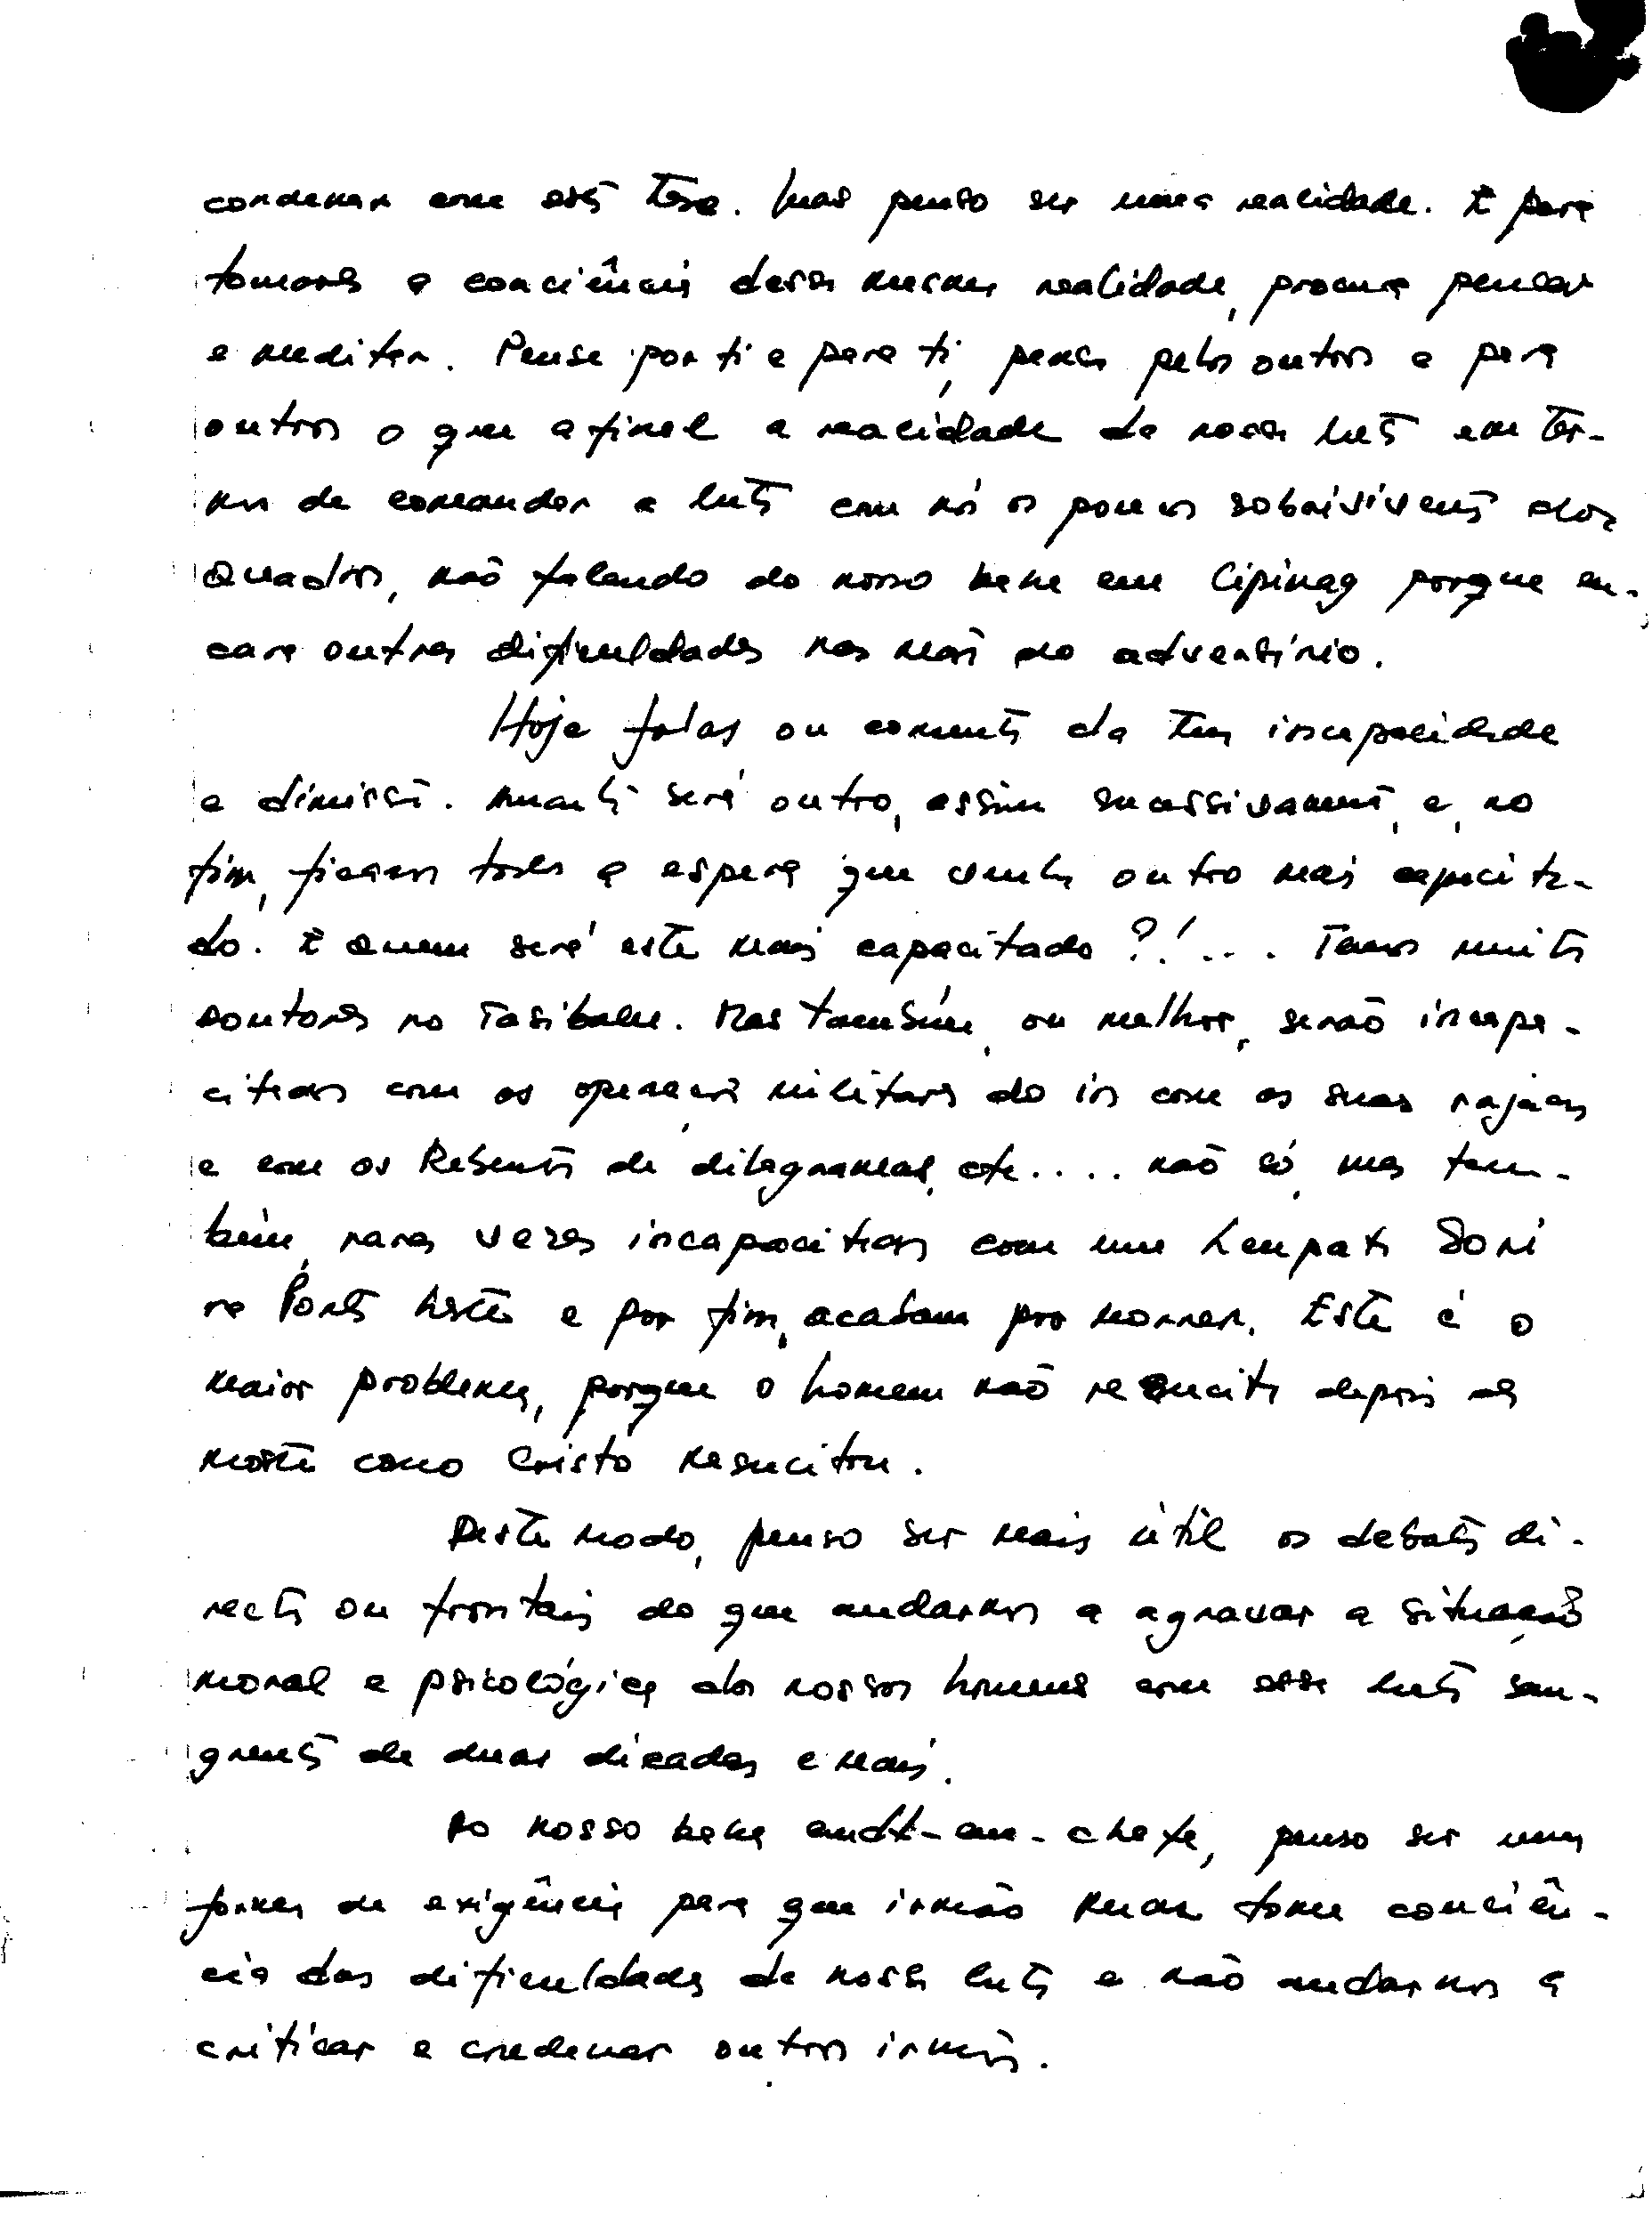 condenar com esta tese. Mas penso ser uma realidade. E para
tomares a conciência dessa mesma realidade, procura pensar
e meditar. Pense por ti e para ti, pensa pelos outros e para
outros o que afinal a realidade da nossa luta em ter-
mos de comandar a luta com nós os poucos sobrivivente dos
Quadros, não falando do nosso mane em Cipinag porque en-
cara outras dificuldades nas mãos do adversário.
Hoje falas ou comenta da tua incapacidade
e dimissão. Amanhã será outro, assim sucessivamente, e, no
fim, ficam todos a espera que venha outro mais capacita-
do. E Quem será este mais capacitado ?!... Temos muitos
Doutores no Tasibalu. Mas também, ou melhor, serão incapa-
citados com as operações militares do in com as suas rajadas
e com os Rebentos de dilagramas, etc.... não só, mas tam-
bém, raras vezes incapacitados com um
na Ponta Leste e por fim, acabam por morrer. Este é o
maior problema, porque o homem não resucita depois da
morte como Cristo resucitou.
Deste modo, penso ser mais útil os debates di-
rectos ou frontais do que andarmos a agravar a situação
moral e psicológica dos nossos homens com essa luta san-
grenta de duas décadas e mais.
Ao nosso mane cmdt-em-chefe, penso ser uma
forma de exigência para que irmão Ruak tome conciên-
cia das dificuldades da nossa luta e não andarmos a
criticar e condenar outros irmãos.